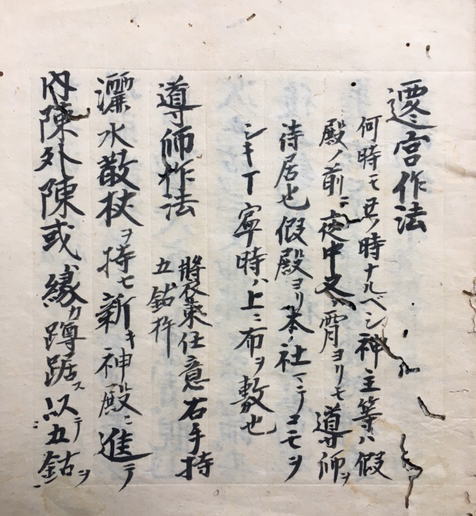 遷宮作法
何時モ丑ノ時ナルベシ神主等ハ假
殿ノ前ニ夜中又ハ宵ヨリモ導師ヲ
待居也假殿ヨリ本ノ社マテコモヲ
シキ丁寧時ハ上ニ布ヲ敷也
導師作法 裝束任意右手持
五鈷杵
灑水散杖ヲ持セ新キ神殿ニ進テ
内陳外陳或ハ縁カ蹲踞ス以テ五鈷ヲ